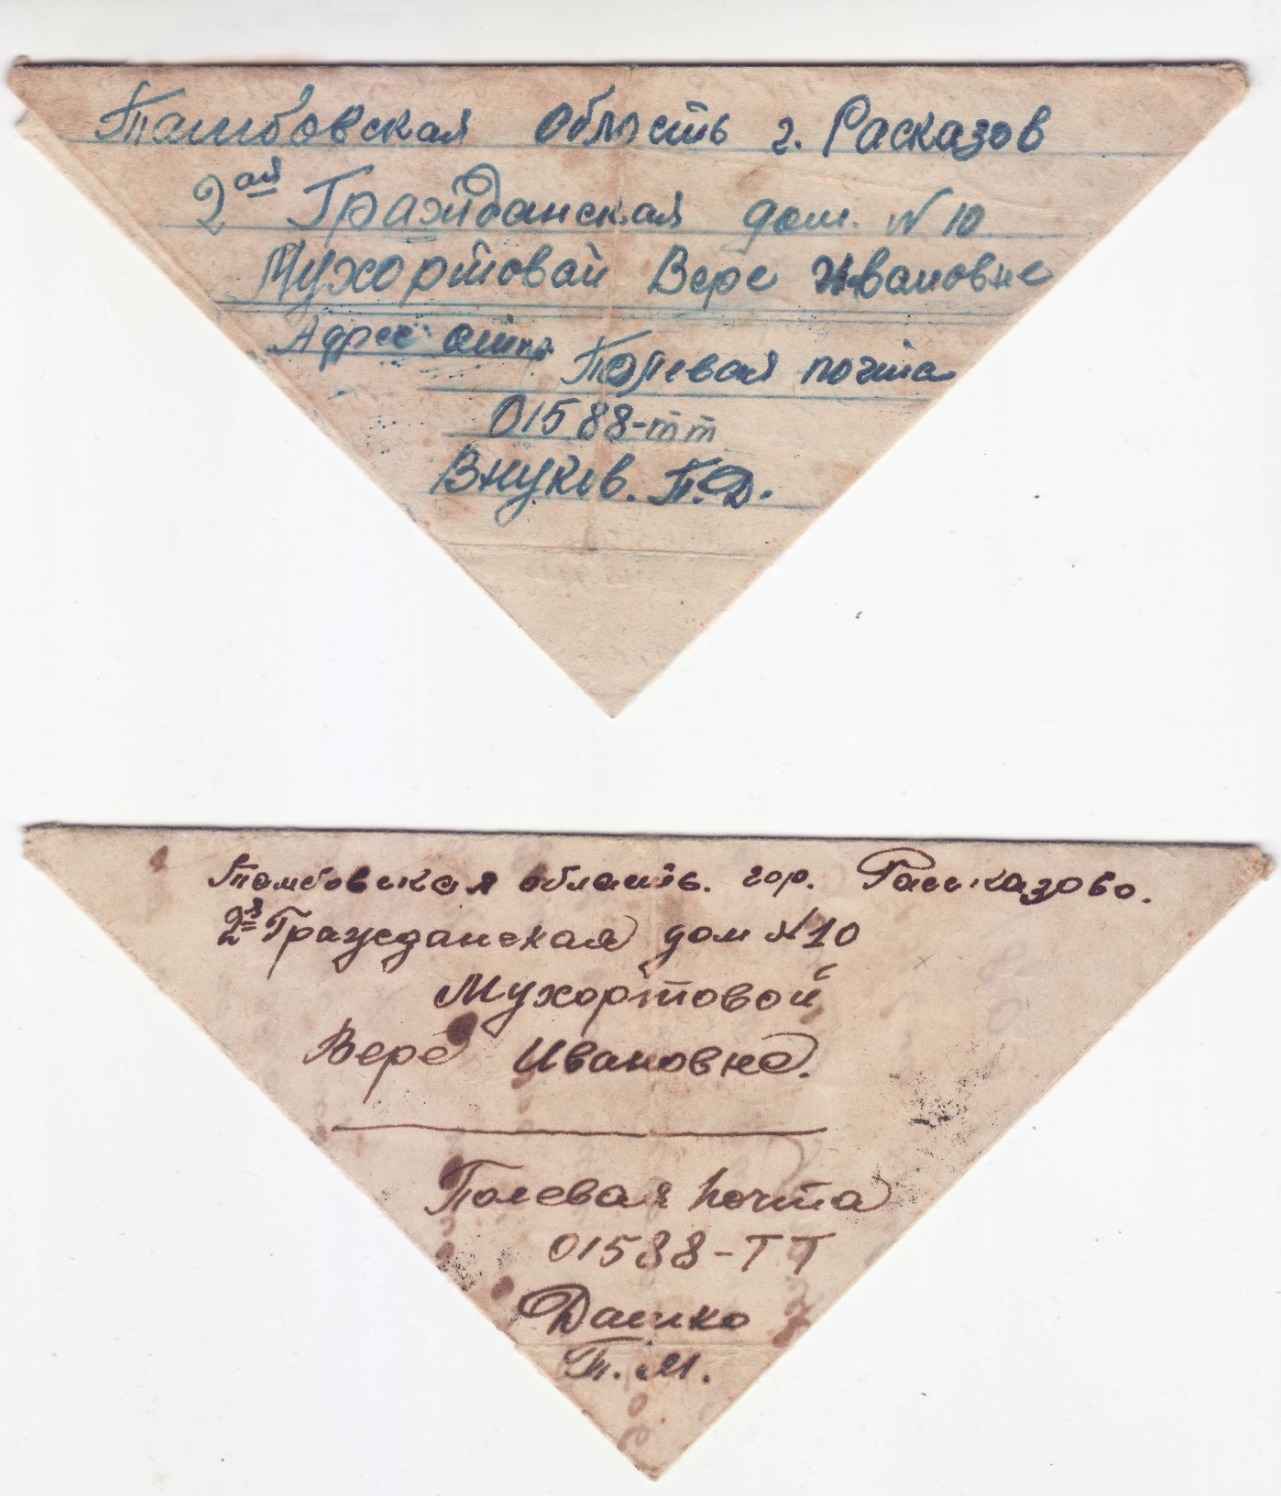 Тамбовская область г. Расказов
2ая Гражданская дом. N 10
Мухортовой Вере Ивановне
Адрес отпр.
Полевая почта
01588-тт
Внуков. П.Д.
Тамбовская область. гор. Рассказово.
2я Гражданская дом N 10
Мухортовой
Вере Ивановне.
Полевая почта
01588-ТТ
Дашко
Т. М.